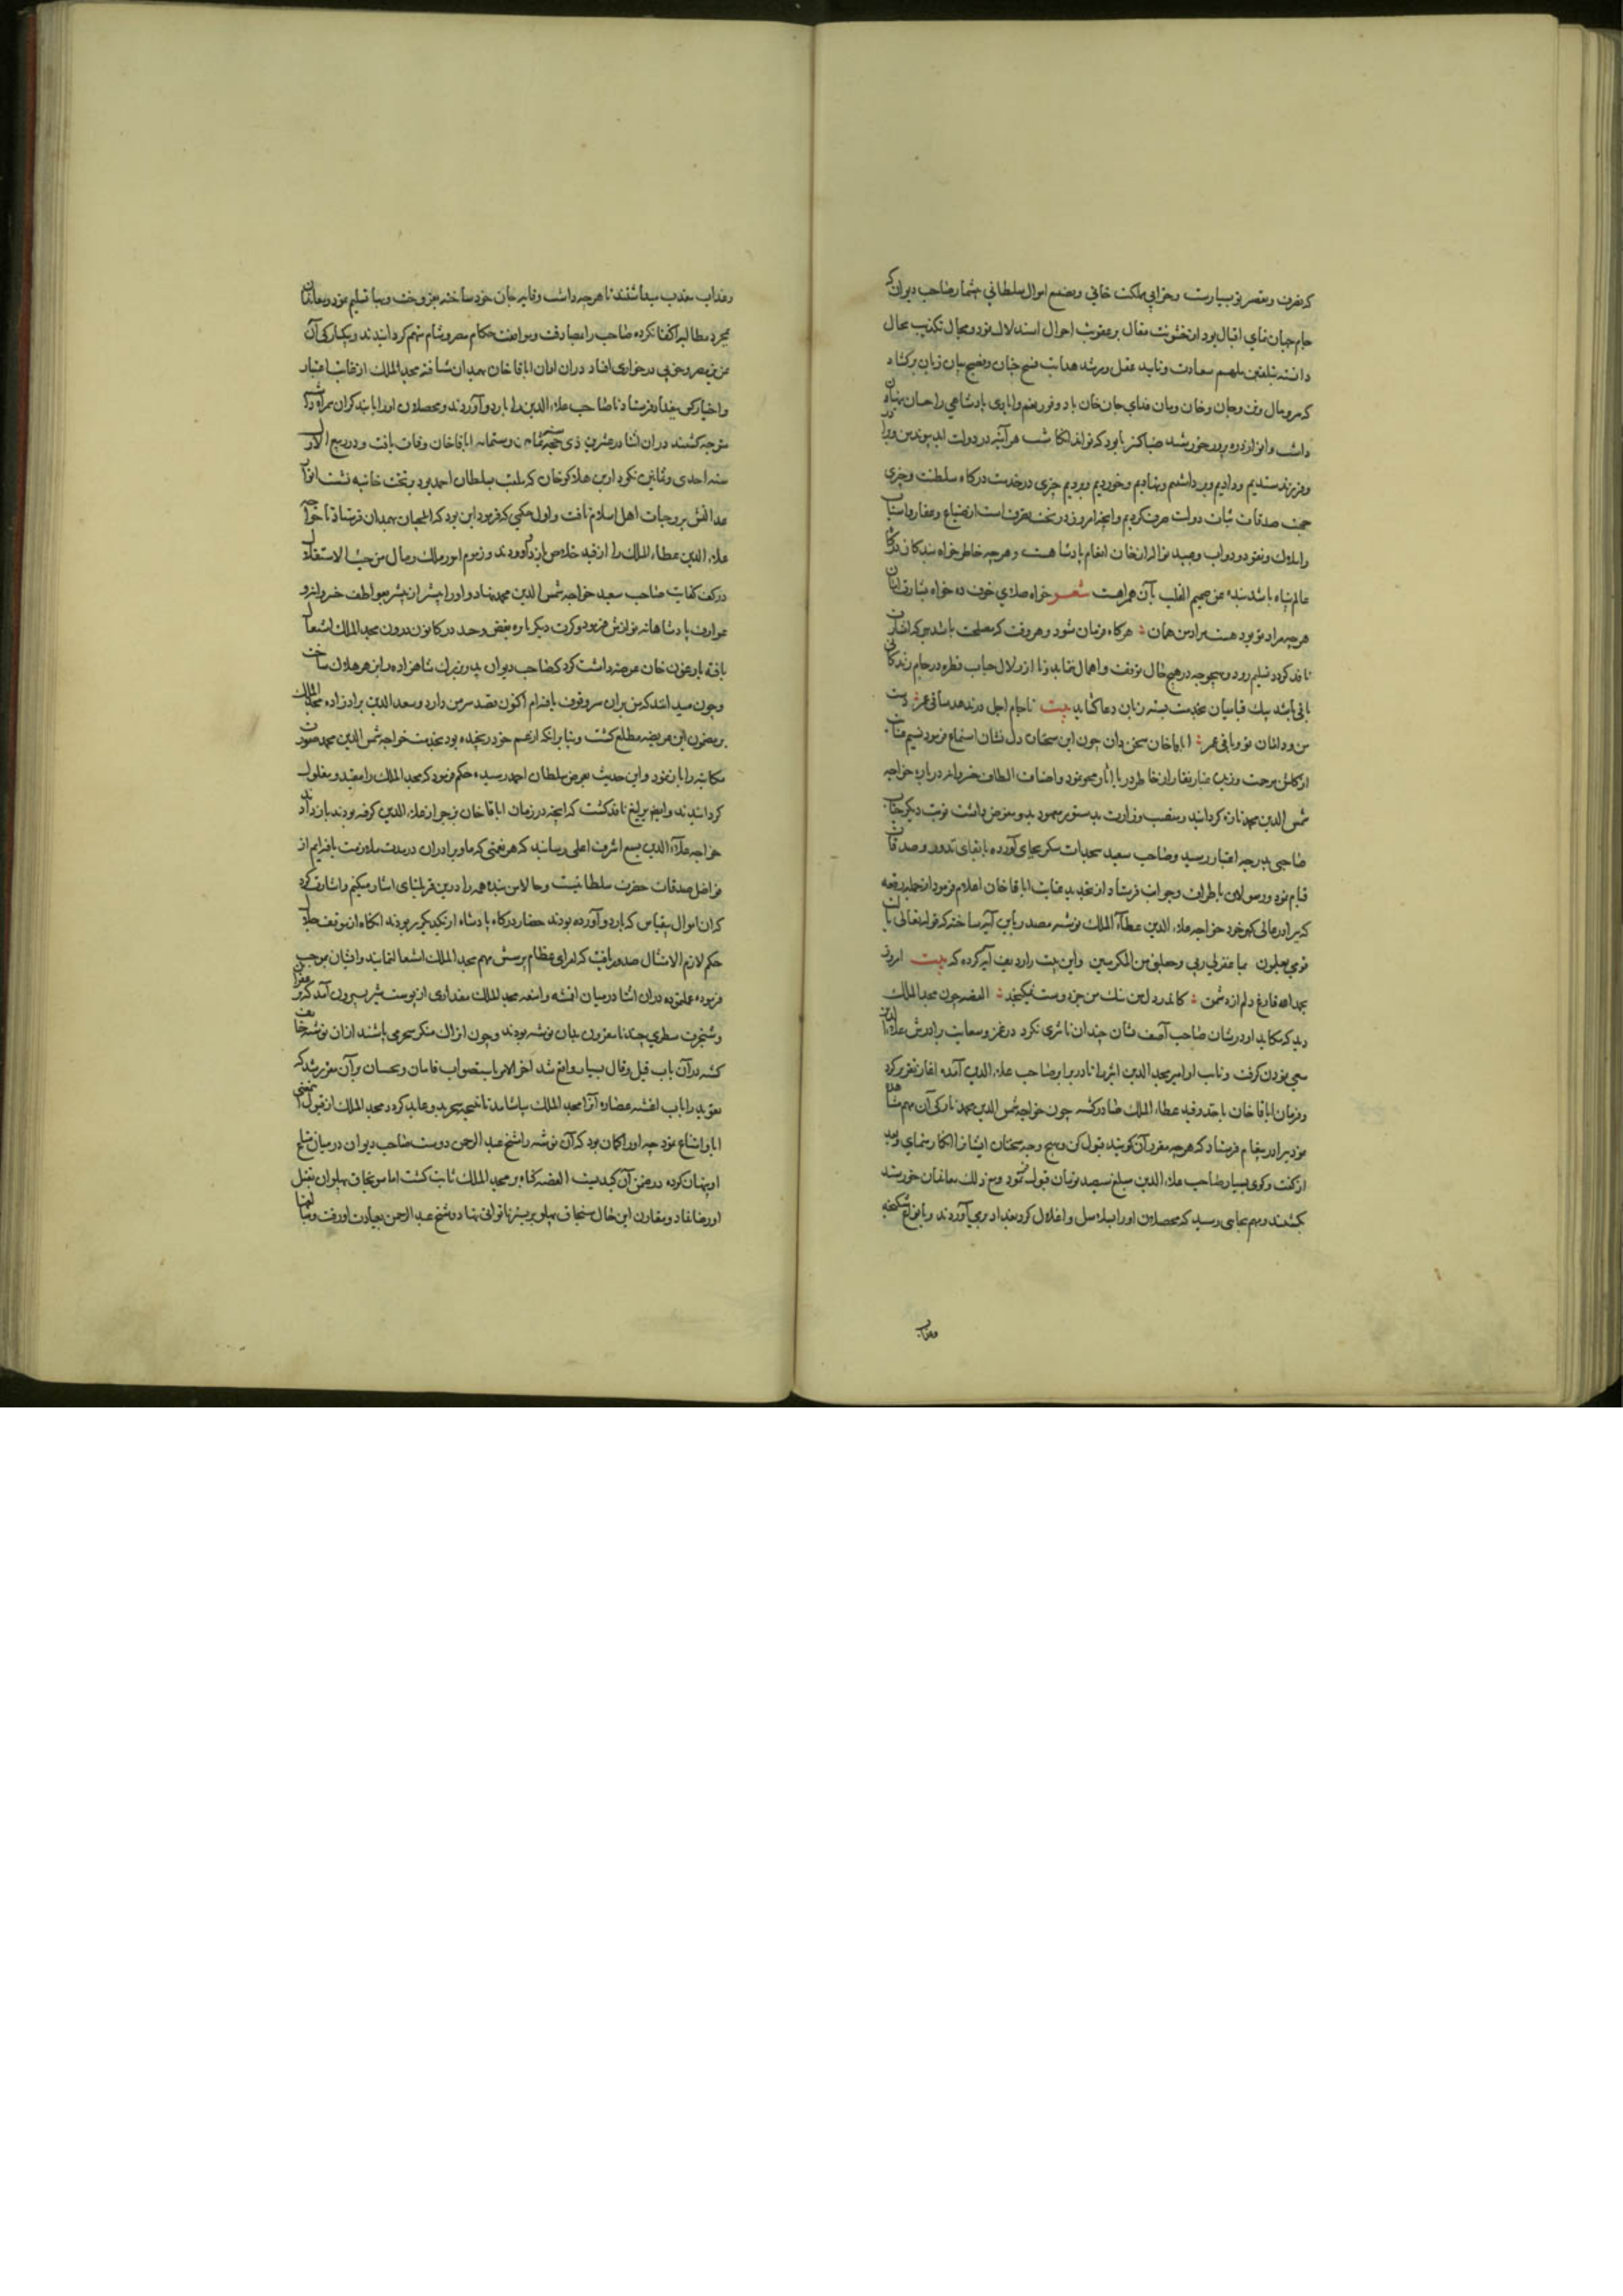 که تصرف و تقصیر تو بسیارست و خرابی مملکت خانی و تضییع اموال سلطانی بیشمار صاحب دیوان که
جام جهان نمای اقبال بود از خشونت مقال بر عقوبت احوال استدلال نمود و مجال تکذیب محال
دانسته بتلقین ملهم سعادت و تایید عقل و مرشد هدایت فسیح جنان و فصیح بیان زبان برکشاد
که سر و مال وقت و جان و خان و مان فدای جان خان باد و فور نعم و ایادی پادشاهی را چسان پنهان
داشت و انوار ذره پرور خورشید ضیا کستر
و فرزند ستدیم و دادیم و برداشتیم و نهادیم و خوردیم و بردیم جزی در خدمت درکاه سلطنت و جزی
جهت صدقات ثبات دولت صرف کردیم و آنچه امروز در تحت تصرف است از ضیاع و عقار و اسباب
و املاک و نقود و دواب و عبید نوال از خان انعام پادشاهست و هرچه خاطر خواه بندکان درکاه
عالم پناه باشد بنده من صمیم القلب بآن همراهست شعر خواه صلای خوف ده خواه بشارت امان
هرچه مراد تو بود هست مراد من همان هرکاه فرمان شود و هر وقت که مصلحت باشد بهرکه اشارت
نافذ کردد تسلیم رود و بهیچوجه در هیچ حال توقف و اهمال ننماید و تا از زلال حیات قطره در جام زندکانی
باقی باشد بیک قبا میان بخدمت بسته زبان دعا کشاید بیت تا جام اجل در ندهد ساقی عمر دست
من و دامان تو و باقی عمر اباقا خان سخن دان چون این سخنان دل نشان استماع فرمود نسیم عنایت
از کلشن مرحمت وزید غبار نقار از خاطر دریا آثار محو نمود و اضاف الطاف خسروانه درباره خواجه
شمس الدین محمد تازه کردانید و منصب وزارت بدستور معهود بدو مفوض داشت نوبت دیکر جناب
صاحبی بدرجه اعتبار رسید و صاحب سعید سجدات شکر بجای آورده بایفای نذور و صدقات
قیام نمود و رسولان باطراف و جوانب فرستاد از تجدید عنایت اباقا خان اعلام فرمود از جمله رقعه
که برادر عالی کهر خود خواجه علاء الدین عطا الملک نوشته مصدر باین آیه ساخته که قوله تعالی یا لیت
قومی یعلمون بما غفرلی ربی و جعلنی من المکرمین و این بیت را ردیف آیه کرده که بیت امروز
بحمد الله فارغ دلم از دشمن کاندر دل من بنک من جز دوست نمیکنجد القصه چون مجد الملک
دید که مکاید او در شان صاحب آصف نشان چندان تاثیری نکرد در غمز و سعایت برادرش علاء الدین
سعی نمودن کرفت و نایب او امیر مجد الدین اثیر را نا در برابر صاحب علاء الدین آمده آغاز تقریر کرد
و فرمان اباقا خان باخذ و قید عطا الملک صادر کشته چون خواجه شمس الدین محمد نازکی آن مهم مشاهده
نمود ببرادر پیغام فرستاد که هرچه مقرر آن کویند قبول کن و بهیچ وجه سخنان ایشانرا انکار منمای و بعد
از کفت و کوی بسیار صاحب علاء الدین مبلغ سیصد تومان قبول نمود و مع ذلک معاندان خورسند
نکشتند و مهم بجایی رسید که محصلان او را بسلاسل و اغلال کرد بغداد برمیآوردند و بانواع شکنجه
وعذاب
وعذاب معذب میداشتند تا هرچه داشت وقایه جان خود ساخته بفروخت و بها تسلیم نمود و معاندان
بمجرد مطالبه اکتفا نکرده صاحب را بمصادقت و موافقت حکام مصر و شام متهم کردانیدند و یکبارکی آن
عزیز مصر وجود بی در خواری افتاد در آن اوان اباقا خان بهمدان شتافته مجد الملک از غایت اعتبار
و اختیار کس ببغداد فرستاد تا صاحب علاء الدین را باردو آوردند و محصلان او را با بند کران همراه داشته
متوجه کشتند در آن اثنا در عشرین ذی حجه ثمانین و ستمایه اباقا خان وفات یافت و در ربیع الاول
سنه احدی و ثمانین نکودار بن هلاکو خان که ملقب بسلطان احمد بود بر تخت خانیه نشست انوار
عدالتش بر وجنات اهل اسلام تافت و اول حکمی که فرمود این بود که ایلچیان بهمدان فرستاد تا خواجه
علاء الدین عطاء الملک را از قید خلاص داده آوردند و زمام امور ملک و مال من حیث الاستقلال
در کف کفایت صاحب سعید خواجه شمس الدین محمد نهاد و او را بیشتر از پیشتر بعواطف خسروانه و
عوارف پادشاهانه نوازش فرمود و کرت دیکر باره بغض و حسد در کانون درون مجد الملک اشتعال
یافته بارغون خان عرضه داشت کرد که صاحب دیوان پدر بزرک شاهزاده را بزهر هلاک ساخت
و چون میداند که من بر آن سر وقوف یافته‌ام اکنون قصد سر من دارد و سعد الدین برادرزاده مجد الملک
بر مضمون این عریضه مطلع کشت و بنا بر آنکه از عم خود رنجیده بود بخدمت خواجه شمس الدین محمد صورت
مکاتبه را باز نمود و این حدیث بعرض سلطان احمد رسیده حکم فرمود که مجد الملک را مقید و مغلول
کردانیدند و ایضا یرلیغ نافذ کشت که آنچه در زمان اباقا خان بزجر از علاء الدین کرفته بودند باز دادند
خواجه علاء الدین بسمع اشرف اعلی رسانید که هر نعمتی که ما و برادران در مدت ملازمت یافته‌ایم از
فواضل صدقات حضرت سلطانیست و حالا من بنده همه را درین قریلتای ایثار میکنم و اشارت کرد
که آن اموال بیقیاس که باردو آورده بودند حضار درکاه پادشاه از یکدیکر بربودند آنکاه از موقف جلال
حکم لازم الامتثال صدور یافت که امرای عظام پرسش مهم مجد الملک اشتغال نمایند و ایشان بموجب
فرموده عمل نموده در آن اثنا در میان اقمشه و امتعه مجد الملک مقداری از پوست شیر بیرون آمد که بزعفران
و شنجرف سطری چند نا مقروء بدان نوشته بودند و چون اتراک منکر سحر می باشند از آن نوشته خائف
کشته در آن باب قیل و قال بسیار واقع شد آخر الامر باستصواب قامان و بخشیان بر آن مقرر شد که
تعویذ را بآب آغشته عصاره آنرا مجد الملک بیاشامد تا نتیجه سحر بدو عاید کردد مجد الملک از قبول
ابا و امتناع نمود چه او را کمان بود که آن نوشته را شیخ عبد الرحمن دوست صاحب دیوان در میان متاع
او پنهان کرده و در ضمن آن کیدیست القصه کناه بر مجد الملک ثابت کشت اما سونجاق بهلوان بقتل
او رضا نداد و مقارن این حال سنجاق پهلو بر بستر ناتوانی نهاد و شیخ عبد الرحمن بعیادت او رفت